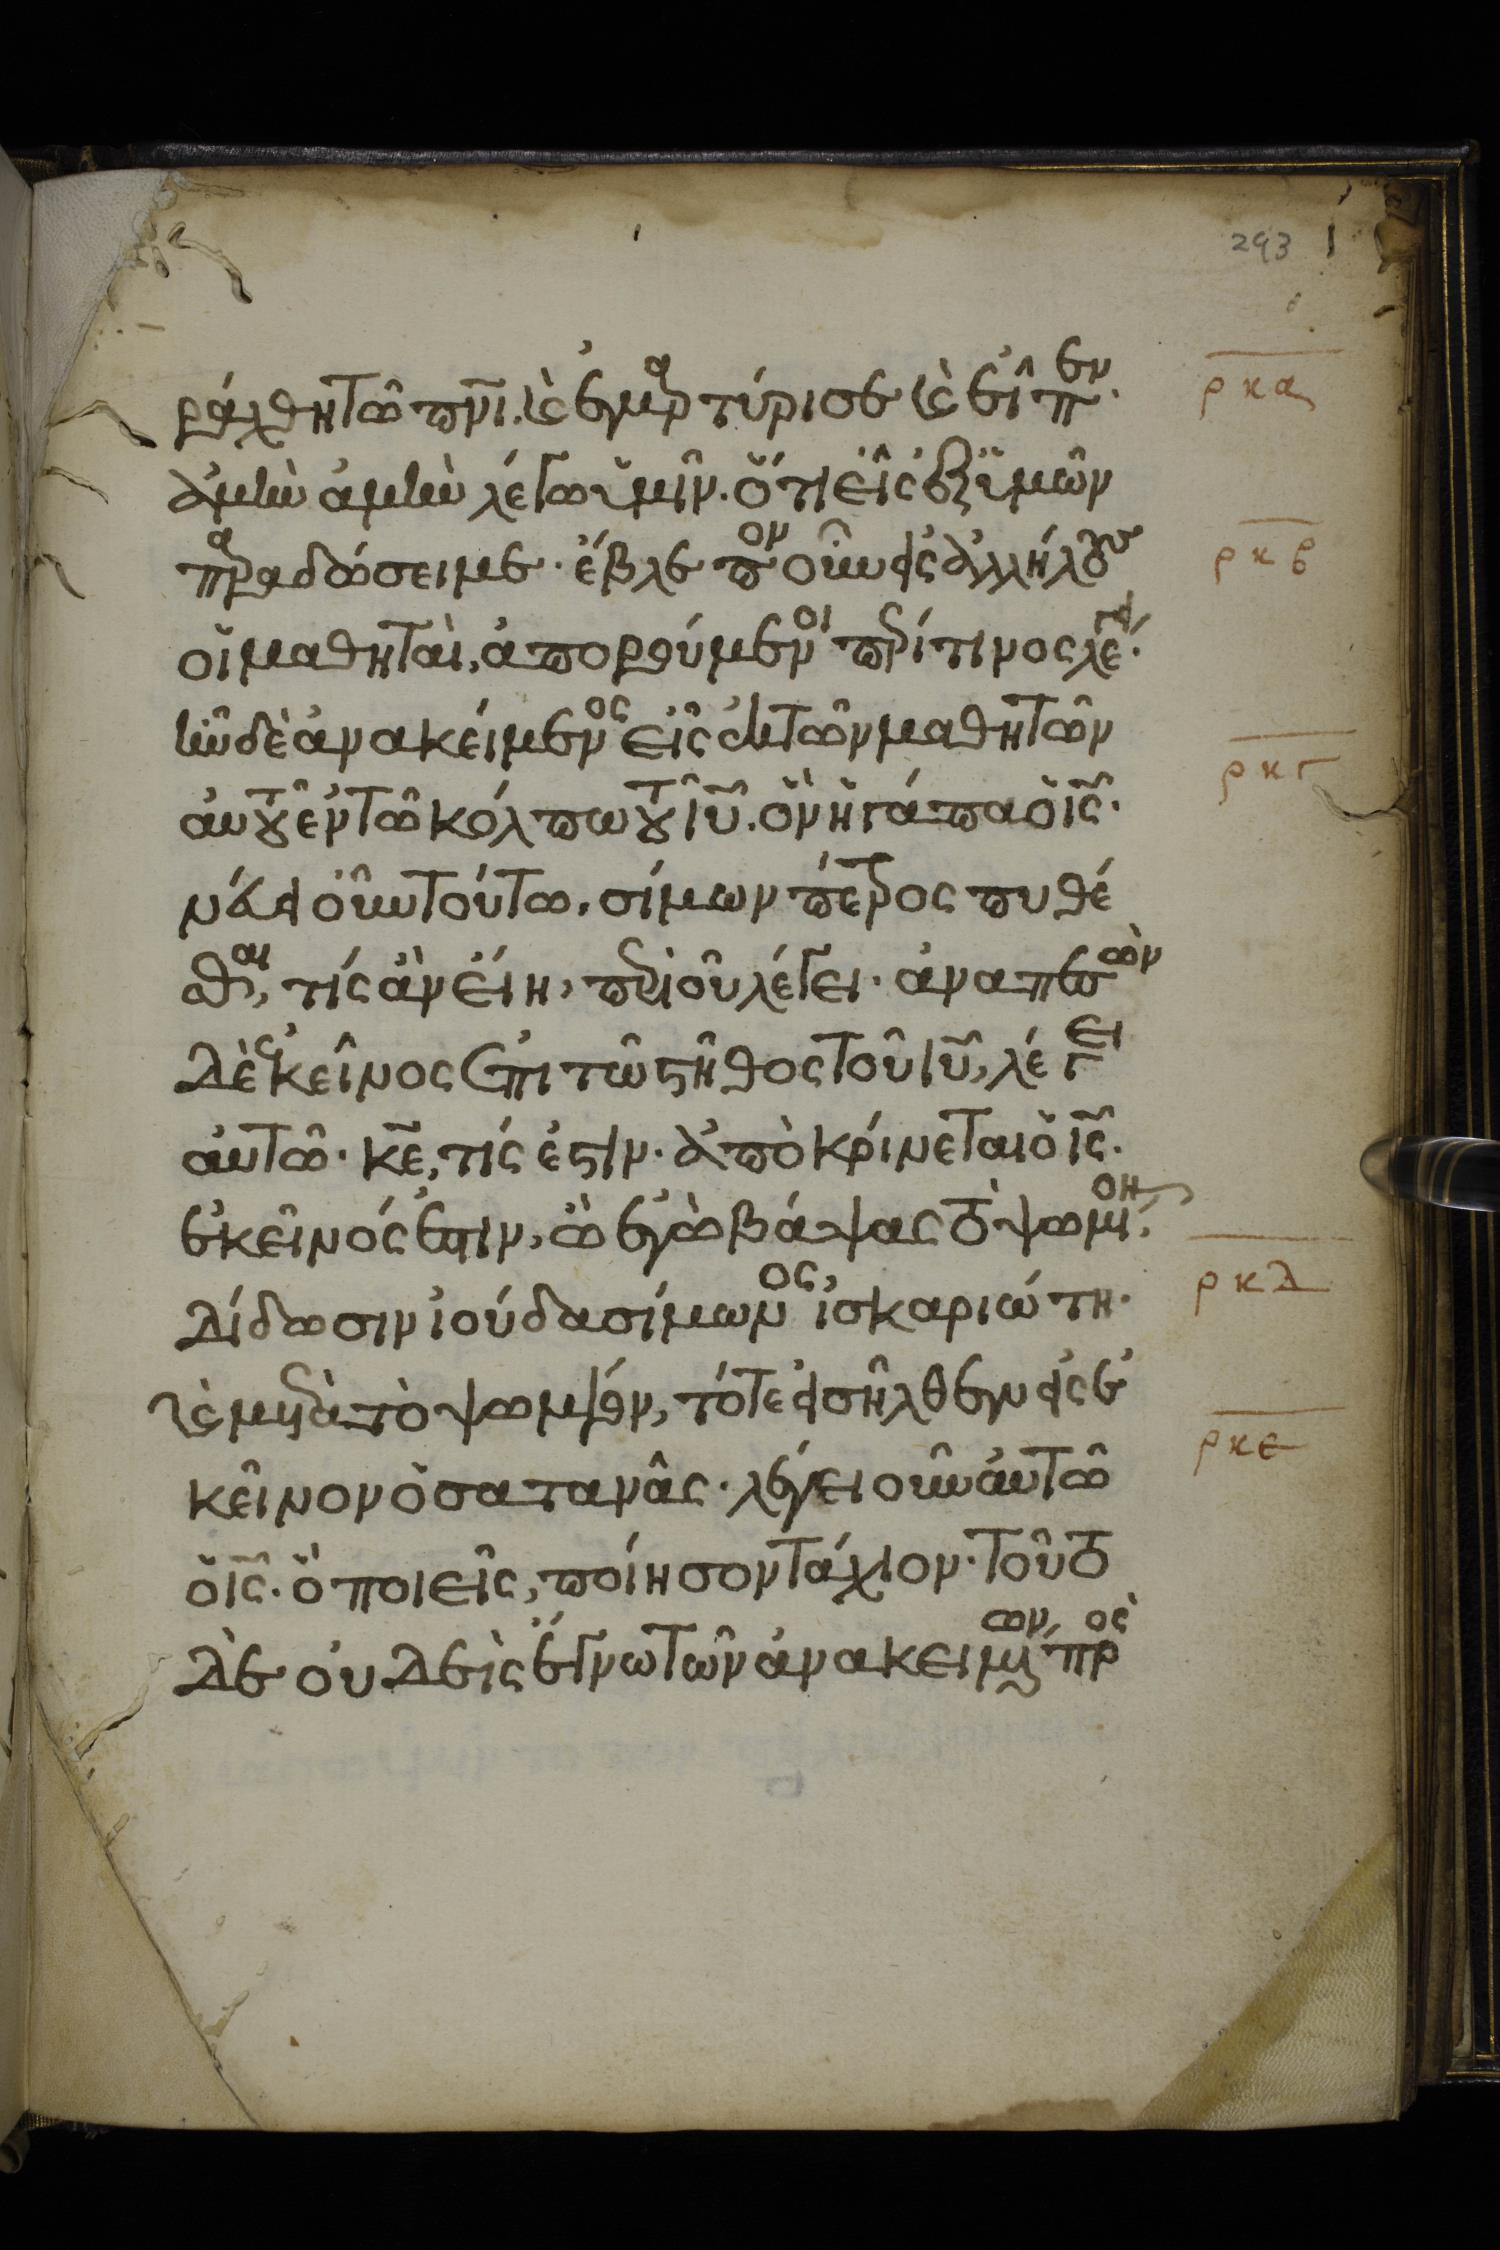 293
ράχθη τῶ πνι. κ̀ ἐμαρτύρισε κ̀ εἶπεν.
ρκα
ἀμὴν ἀμὴν λέγω ὑμῖν. ὅτι εἷς ἐξ ὑμῶν
παραδώσει με. ἔβλεπον οὖν εἰς ἀλλήλους
ρκβ
οἱ μαθηταὶ, ἀπορούμενοι περί τινος λέγει.
ἦν δὲ ἀνακείμενος εἷς ἐκ τῶν μαθητῶν
αὐτοῦ ἐν τῶ κόλπω τοῦ ιυ. ὃν ἠγάπα ὁ ις.
ρκγ
νεύει οὖν τούτω, σίμων πέτρος πυθέ
σθαι, τίς ἂν εἴη, περὶ οὗ λέγει. ἀναπεσὼν
δὲ ἐκεῖνος ἐπι τῶ στῆθος τοῦ ιυ, λέγει
αὐτῶ. κε, τίς ἐστιν. ἀπὸκρίνεται ὁ ις.
ἐκεῖνός ἐστιν, ὧ ἐγὼ βάψας τὸ ψωμίον
δίδωσιν ἰούδα σίμωνος, ἰσκαριώτη.
ρκδ
κ̀ μετὰ τὸ ψωμίον, τότε εἰσῆλθεν εἰς ἐ
κεῖνον ὁ σατανᾶς. λέγει οὖν αὐτῶ
ρκε
ὁ ις. ὃ ποιεῖς, ποίησον τάχιον. τοῦτο
δὲ οὐδεὶς ἔγνω τῶν ἀνακειμένων, πρὸς